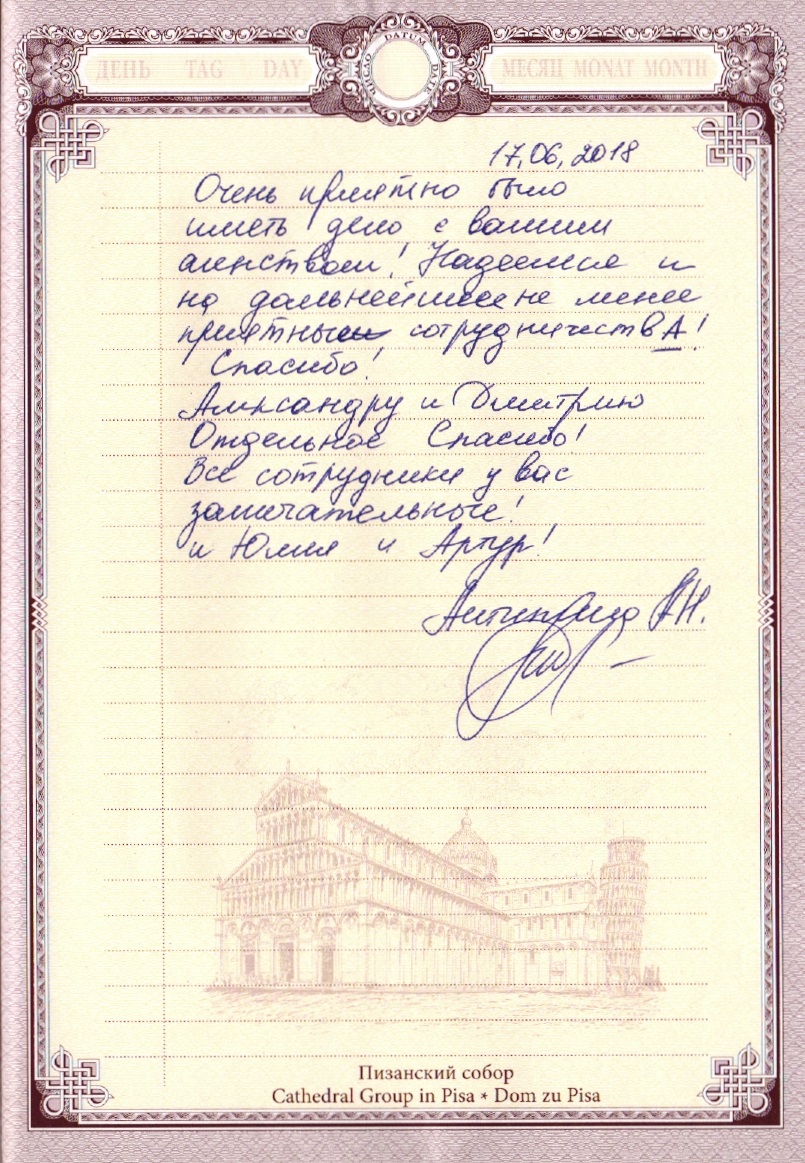 ДЕНЬ TAG DAY
DATUM
МЕСЯЦ MONAT MONTH
17,06,2018
Очень приятно было
иметь дело с вашим
агенством! Надеемся и
на дальнейшее не менее
приятные сотрудничествА!
Спасибо!
Александру и Дмитрию
Отдельное Спасибо!
Все сотрудники у вас
замичательные!
и Юлия и Артур!
Пизанский собор
Cathedral Group in Pisa * Dom zu Pisa